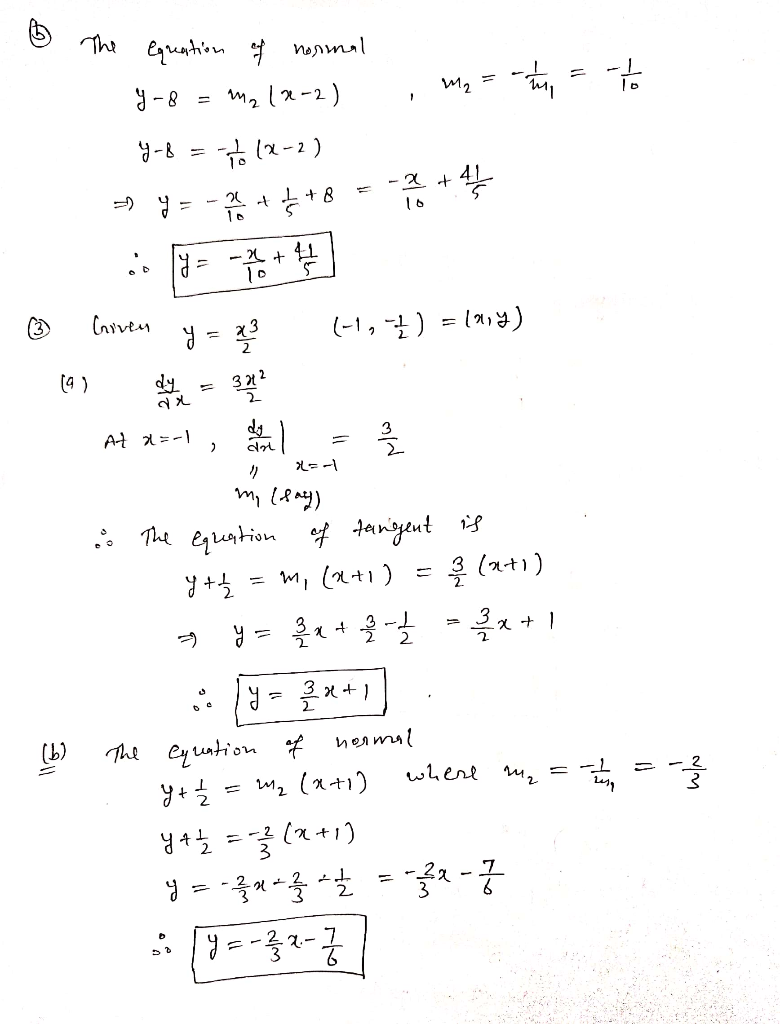 (b) The equation of normal
y-8 = m₂(x-2) , m₂ = -1/m₁ = -1/10
y-8 = -1/10 (x-2)
⇒ y = -x/10 + 1/5 + 8 = -x/10 + 41/5
∴ y = -x/10 + 41/5
(3) Given y = x³/2 (-1, -1/2) = (x, y)
(a) dy/dx = 3x²/2
At x=-1, dy/dx | x=-1 = 3/2
" m₁ (say)
∴ The equation of tangent is
y+1/2 = m₁(x+1) = 3/2 (x+1)
⇒ y = 3/2 x + 3/2 - 1/2 = 3/2 x + 1
∴ y = 3/2 x + 1
(b) The equation of normal
y+1/2 = m₂(x+1) where m₂ = -1/m₁ = -2/3
y+1/2 = -2/3 (x+1)
y = -2/3 x - 2/3 - 1/2 = -2/3 x - 7/6
∴ y = -2/3 x - 7/6